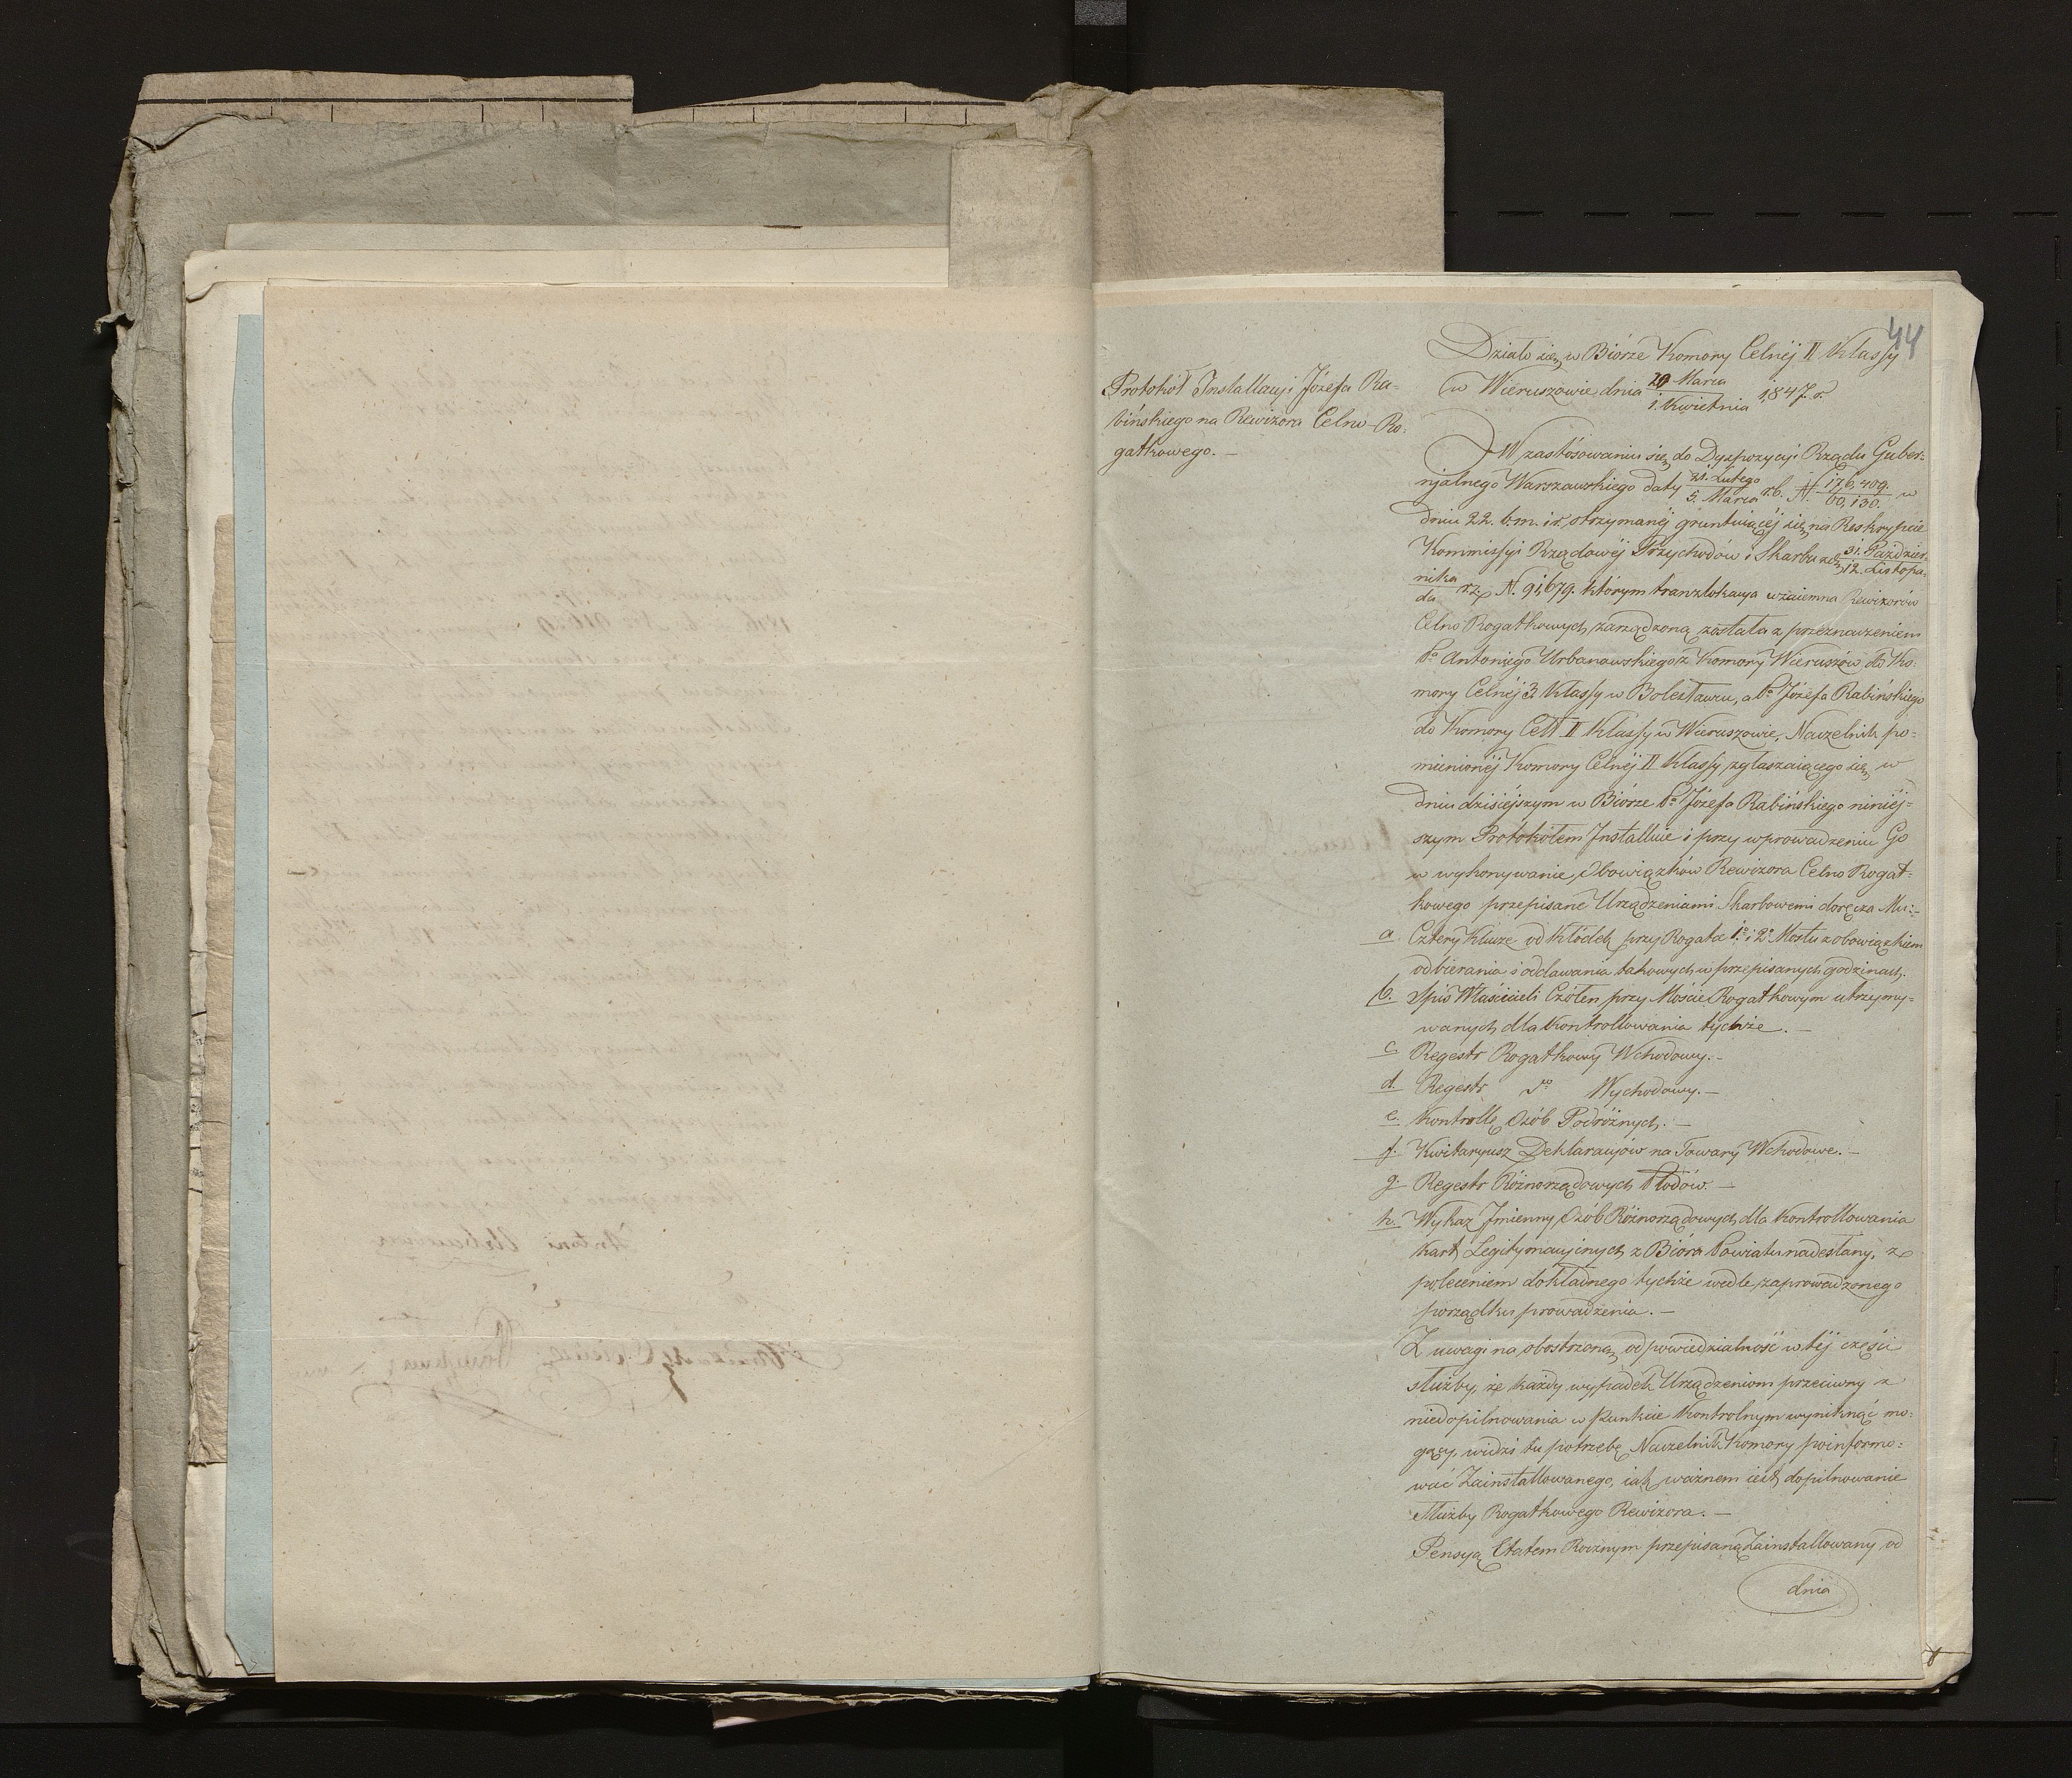 44
Protokół Installacyi Józefa Ra-
bińskiego na Rewizora Celno-Ro-
gatkowego. —
Działo się w Biórze Komory Celnéj II Klassy
w Wieruszowie dnia 20 Marca / 1. Kwietnia 1847. r.
W zastósowaniu się do Dyspozycyi Rządu Guber-
njalnego Warszawskiego daty 21. Lutego / 5. Marca r.b. N. 176,409. / 60,130. w
dniu 22. b.m. i r. otrzymanéj gruntuiącéj się na Reskrypcie
Kommissyi Rządowéj Przychodów i Skarbu z d. 31. Paździer- / 12. Listopa-
nika / da r.z. N. 91,679. którym tranzlokacya wzaiemna Rewizorów
Celno Rogatkowych zarządzoną została z przeznaczeniem
Pa Antoniego Urbanowskiego z Komory Wieruszów do Ko-
mory Celnéj 3 Klassy w Bolesławcu, a Pa Józefa Rabińskiego
do Komory Cell II Klassy w Wieruszowie, Naczelnik po-
mienionéj Komory Celnéj II Klassy zgłaszaiącego się w
dniu dzisiéjszym w Biórze Pa Józefa Rabińskiego niniéj-
szym Protokółem Installuie i przy wprowadzeniu Go
w wykonywanie Obowiązków Rewizora Celno Rogat-
kowego przepisane Urządzeniami Skarbowemi doręcza Mu:-
a. Cztery Klucze od Kłódek przy Rogatce 1o i 2o Mostu z obowiązkiem
odbierania i oddawania takowych w przepisanych godzinach.
b. Spis Właścicieli Czółen przy Moście Rogatkowym utrzymy-
wanych dla Kontrollowania tychże. —
c Regestr Rogatkowy Wchodowy. -
d. Regestr do Wychodowy. —
e. Kontrollę Osób Podróżnych. —
f. Kwitaryusz Deklaracyów na Towary Wchodowe. —
g. Regestr Różnorządowych Płodów. —
h. Wykaz Jmienny Osób Różnorządowych dla Kontrollowania
Kart Legitymacyinych z Bióra Powiatu nadesłany, z
poleceniem dokładnego tychże wedle zaprowadzonego
porządku prowadzenia. —
Z uwagi na obostrzoną odpowiedzialność w téj części
służby, że każdy wypadek Urządzeniom przeciwny z
niedopilnowania w Punkcie Kontrolnym wyniknąć mo-
gący, widzi tu potrzebę Naczelnik Komory poinformo-
wać Zainstallowanego, iak ważnem iest dopilnowanie
Służby Rogatkowego Rewizora. —
Pensyą Etatem Rocznym przepisaną Zainstallowany od
dnia